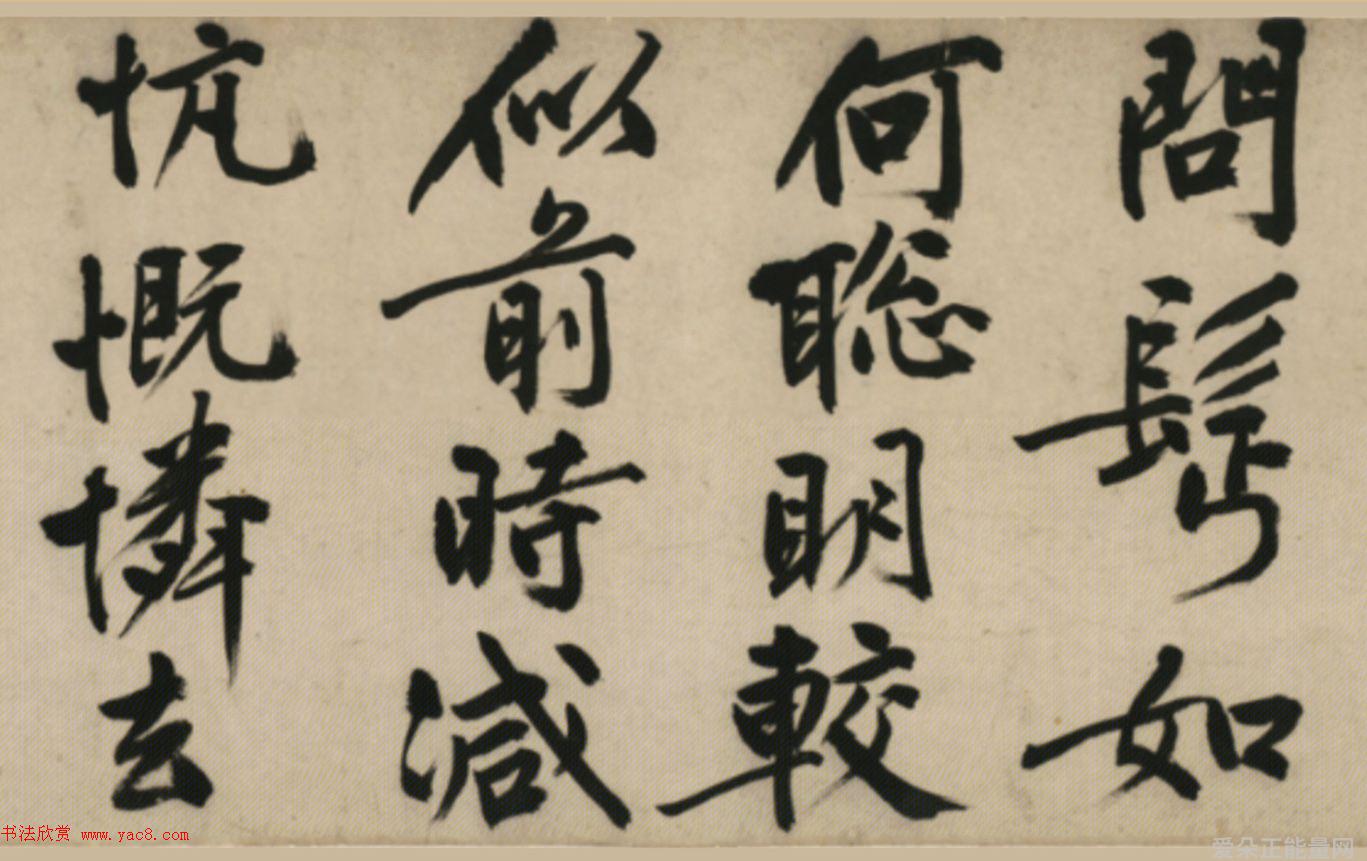 問如
何聰明較
似前時減
忼慨憐去
书法欣赏 www.yac8.com
爱朵正能量网